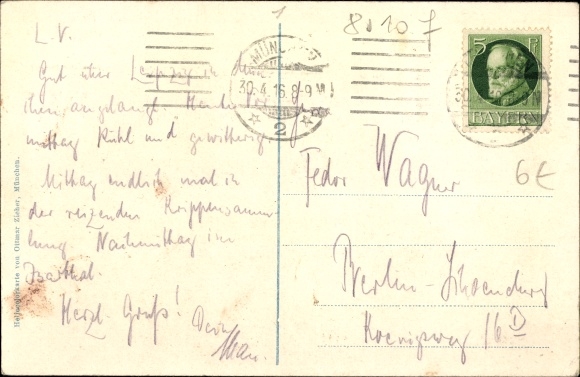 L. V.
Gut über Leipzig in
angelangt. Heute
mittag kühl und gewitterig.
Mittag endlich mal in
der reizenden Krippensamm-
lung Nachmittag im
Isarthal.
Herzl. Gruß!
Dein
Max.
8810 f
MÜNCHEN
30.4.16.8-9 V
2
5 Pf
BAYERN
6€
Fedor Wagner
Berlin-Schoeneberg
Koenigsweg 16 D
Heliogravürkarte von Ottmar Zieher, München.